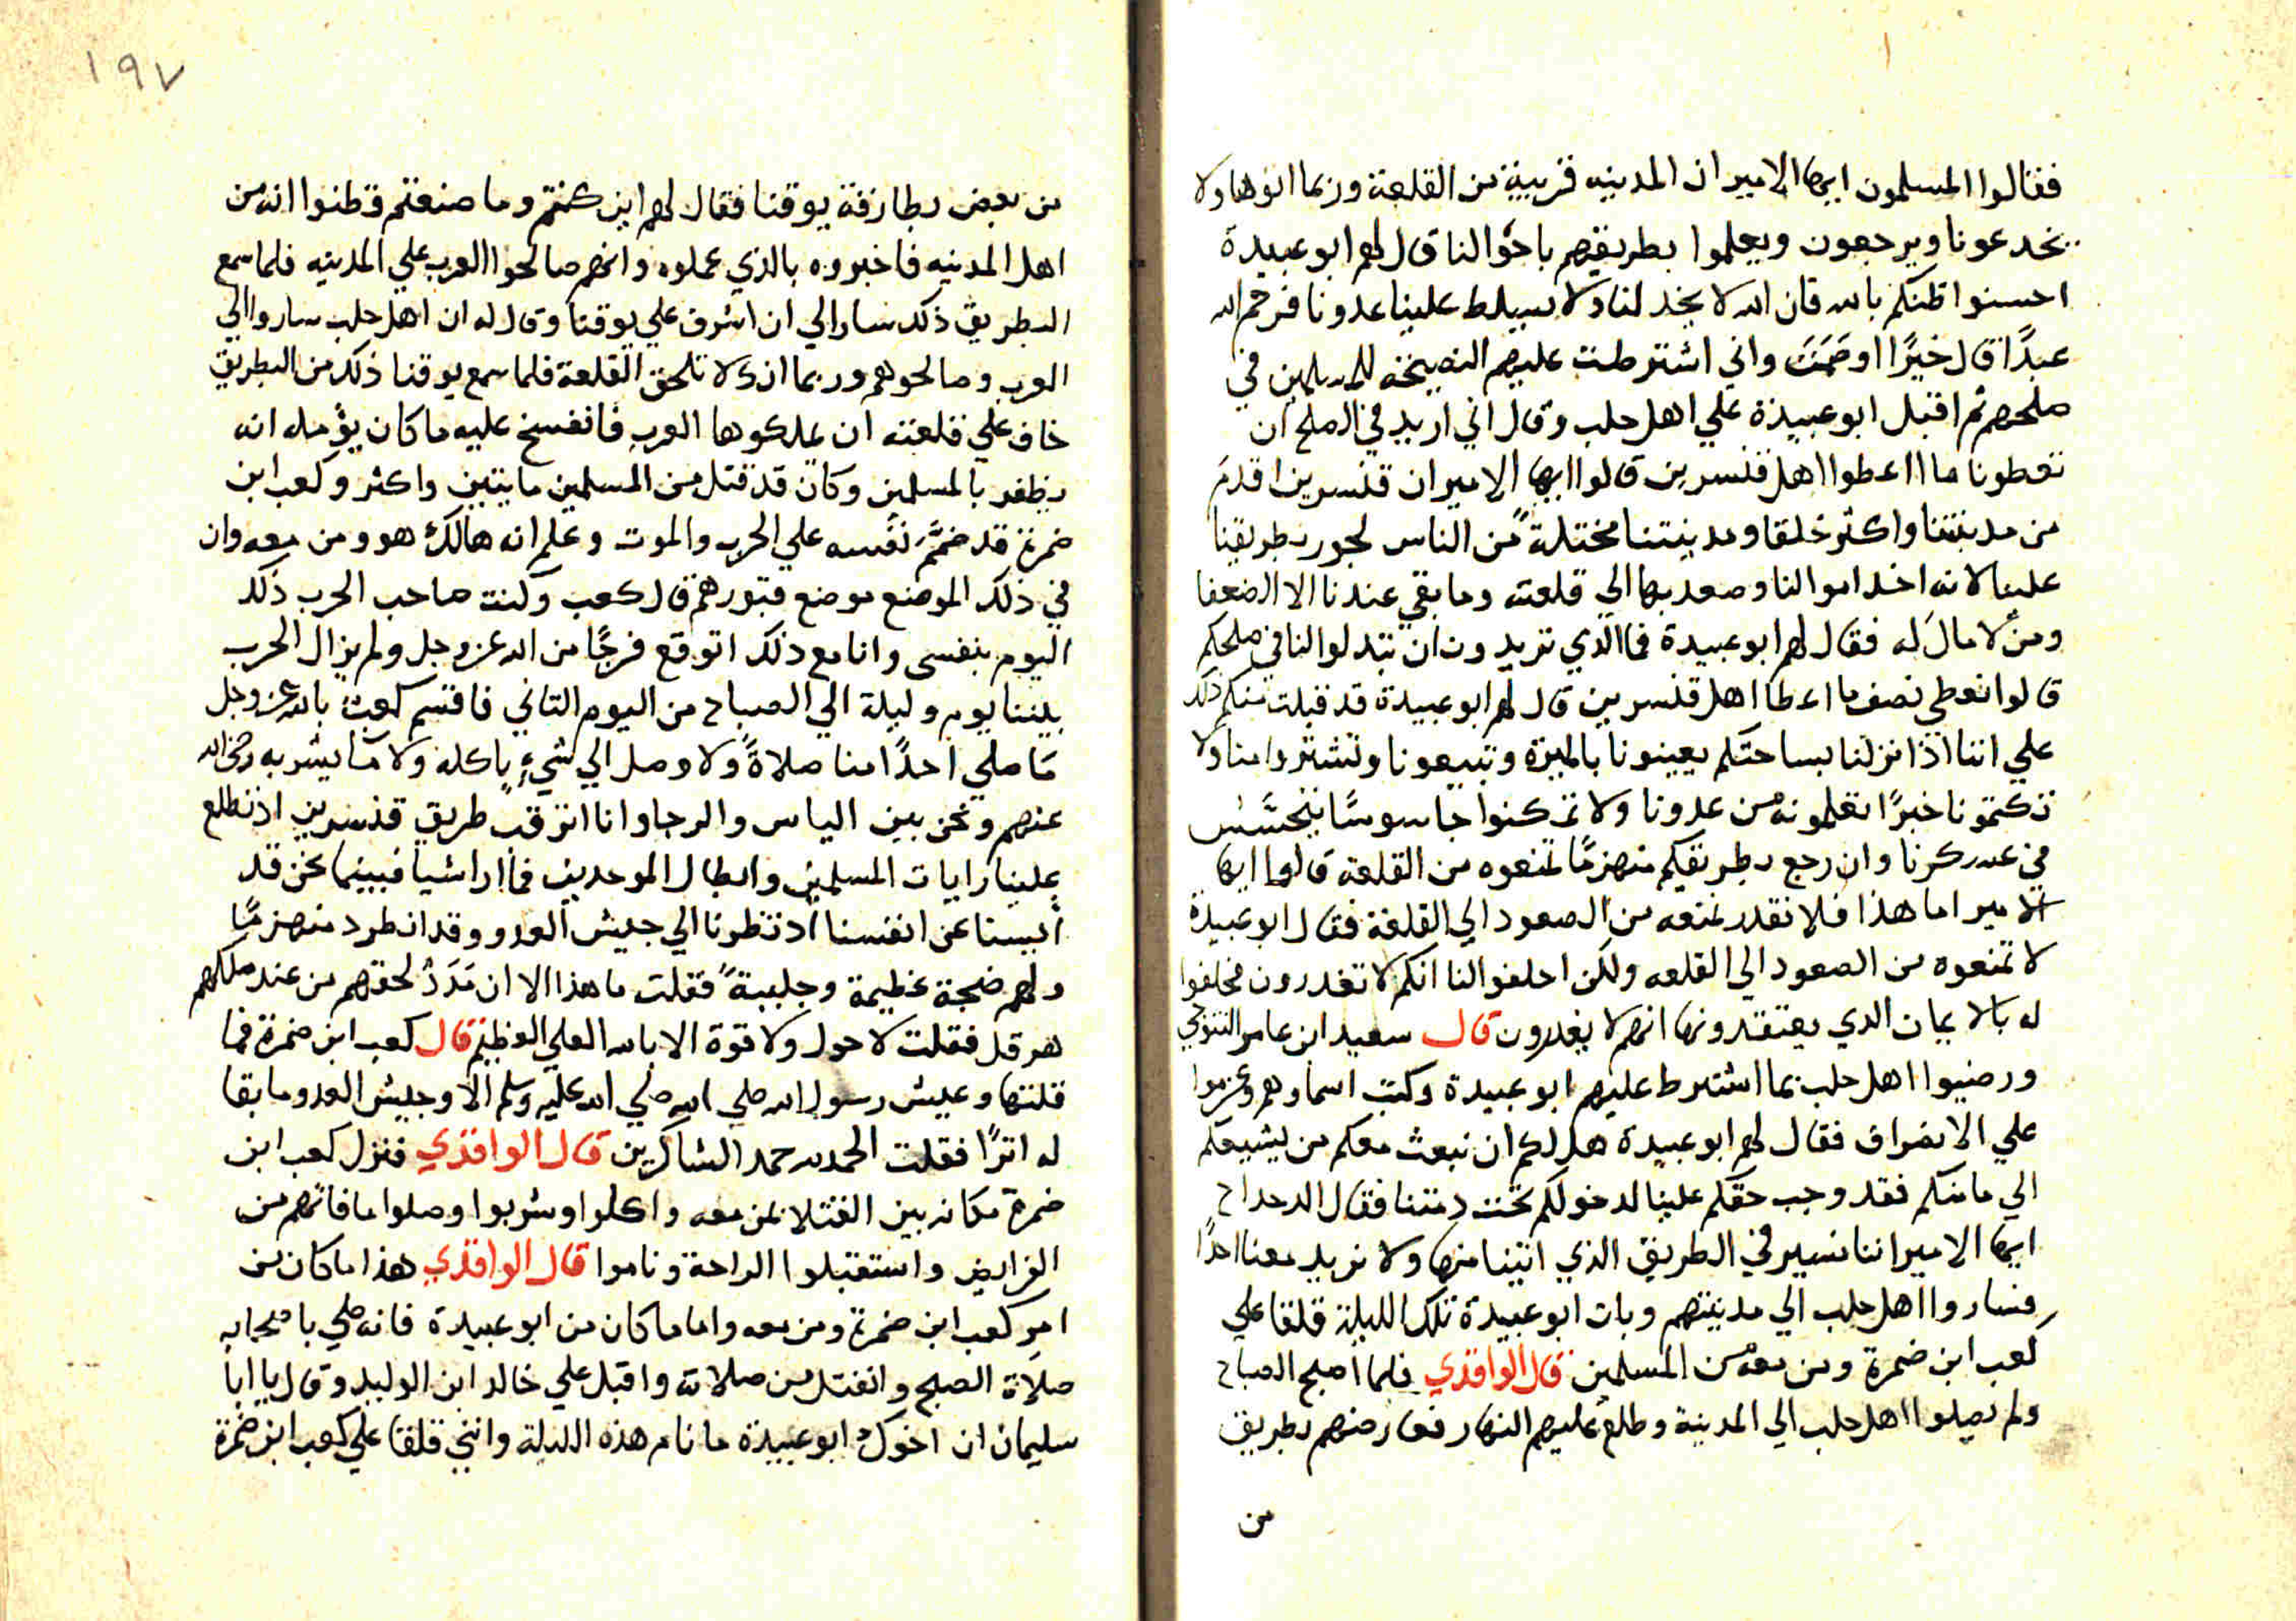 فقالوا المسلمون ايها الامير ان المدينه قريبة من القلعة وربما اتوها ولا
يخدعونا ويرجعون ويعلموا بطريقهم باحوالنا قال لهم ابو عبيدة
احسنوا ظنكم بالله فان الله لا يخذلنا ولا يسلط علينا عدونا فرحم الله
عبدًا قال خيرًا اوصَمَتَ واني اشترطت عليهم النصيحة للمسلمين في
صلحهم ثم اقبل ابو عبيدة علي اهل حلب وقال اني اريد في الصلح ان
تعطونا ما ااعطوا اهل قنسرين قالوا ايها الامير ان قنسرين اقدم
من مدينتنا واكثر خلقا ومدينتنا مختلةً من الناس لجور بطريقنا
علينا لانه اخذ اموالنا وصعد بها الي قلعته وما بقي عندنا الا الضعفا
ومن لا مال له فقال لهم ابو عبيدة فما الذي تريدون ان تبذلوا لنا في صلحكم
قالوا نعطي نصف ما اعطا اهل قنسرين قال لهم ابو عبيدة قد قبلت منكم ذلك
علي اننا اذا نزلنا بساحتكم يعينونا بالميرة وتبيعونا وتشتروا منا ولا
تكتمونا خبرًا تعلمونه من عدونا ولا تمكنوا جاسوسًا يتجسَّس
في عسكرنا وان رجع بطريقكم منهزمًا تمنعوه من القلعة قالوا ايها
الامير اما هذا فلا نقدر نمنعه من الصعود الي القلعة فقال ابو عبيدة
لا تمنعوه من الصعود الي القلعه ولكن احلفوا لنا انكم لا تغدرون فحلفوا
له بالايمان الذي يعتقدونها انهم لا يغدرون قال سعيد ابن عامر التنوخي
ورضيوا اهل حلب بما اشترط عليهم ابو عبيدة وكتب اسماوهم وعزموا
علي الانصراف فقال لهم ابو عبيدة هل لكم ان نبعث معكم من يشيعكم
الي مامنكم فقد وجب حقكم علينا لدخولكم تحت ذمتنا فقال الدحداح
ايها الامير اننا نسير في الطريق الذي اتينا منها ولا نريد معنا احدًا
فساروا اهل حلب الي مدينتهم وبات ابو عبيدة تلك الليلة قلقا علي
كعب ابن ضمرة ومن معه من المسلمين قال الواقدي فلما اصبح الصباح
ولم يصلوا اهل حلب الي المدينة وطلع عليهم النهار فعارضهم بطريق
من
١٩٧
من بعض بطارقة يوقنا فقال لهم اين كنتم وما صنعتم وظنوا انه من
اهل المدينه فاخبروه بالذي عملوه وانهم صالحوا العرب علي المدينه فلما سمع
البطريق ذلك سار الي ان اشرف علي يوقنا وقال له ان اهل حلب ساروا الي
العرب وصالحوهم وربما انك لا تلحق القلعة فلما سمع يوقنا ذلك من البطريق
خاف علي قلعته ان يملكوها العرب فانفسخ عليه ما كان يؤمله انه
يظفر بالمسلمين وكان قد قتل من المسلمين مايتين واكثر وكعب ابن
ضمرة قد ضمَّ نفسه علي الحرب والموت وعلم انه هالك هو ومن معه وان
في ذلك الموضع موضع قبورهم قال كعب وكنت صاحب الحرب ذلك
اليوم بنفسي وانا مع ذلك اتوقع فرجًا من الله عز وجل ولم يزال الحرب
بيننا يوم وليلة الي الصباح من اليوم الثاني فاقسم كعب بالله عز وجل
مَا صلي احدًا منا صلاةً ولا وصل الي شيءٍ ياكله ولا ما يشربه رضي الله
عنهم ونحن بين الياس والرجا وانا اترقب طريق قنسرين اذ تطلع
علينا رايات المسلمين وابطال الموحدين فما ارا شيا فبينما نحن قد
أيسنا عن انفسنا اذ نظرنا الي جيش العدو وقد انطرد منهزمًا
ولهم ضجة عظيمة وجلبةً فقلت ما هذا الا ان مَدَدٌ لحقهم من عند ملكهم
هرقل فقلت لا حول ولا قوة الا بالله العلي العظيم قال كعب ابن ضمرة فما
قلتها وعيش رسول الله صلي الله عليه وسلم الا وجيش العدو ما بقا
له اثرًا فقلت الحمد لله حمد الشاكرين قال الواقدي فنزل كعب ابن
ضمرة مكانه بين القتلا بمن معه واكلوا وشربوا وصلوا ما فاتهم من
الفرايض واستقبلوا الراحة وناموا قال الواقدي هذا ما كان من
امر كعب ابن ضمرة ومن معه واما ما كان من ابو عبيدة فانه صلي باصحابه
صلاة الصبح وانفتل من صلاته واقبل علي خالد ابن الوليد وقال يا ابا
سليمان ان اخوك ابو عبيدة ما نام هذه الليلة وانني قلقا علي كعب ابن ضمرة